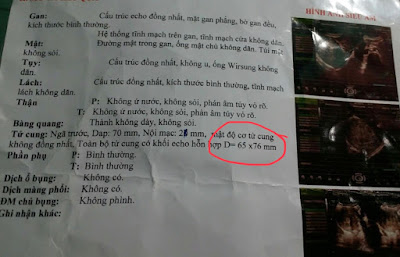 HÌNH ẢNH SIÊU ÂM
Gan: Cấu trúc echo đồng nhất, mặt gan phẳng, bờ gan đều,
kích thước bình thường.
Hệ thống tĩnh mạch trên gan, tĩnh mạch cửa không dãn.
Mật: Đường mật trong gan, ống mật chủ không dãn. Túi mật
không sỏi.
Tụy: Cấu trúc đồng nhất, không u, ống Wirsung không
dãn.
Lách: Cấu trúc đồng nhất, kích thước bình thường, tĩnh mạch
lách không dãn.
Thận P: Không ứ nước, không sỏi, phân âm tủy vỏ rõ.
T: Không ứ nước, không sỏi, phân âm tủy vỏ rõ.
Bàng quang: Thành không dày, không sỏi.
Tử cung: Ngã trước, Dap: 70 mm, Nội mạc: mm, mật độ cơ tử cung
không đồng nhất, Toàn bộ tử cung có khối echo hỗn hợp D= 65 x76 mm
Phần phụ P: Bình thường.
T: Bình thường.
Dịch ổ bụng: Không có.
Dịch màng phổi: Không có.
ĐM chủ bụng: Không phình.
Ghi nhận khác: